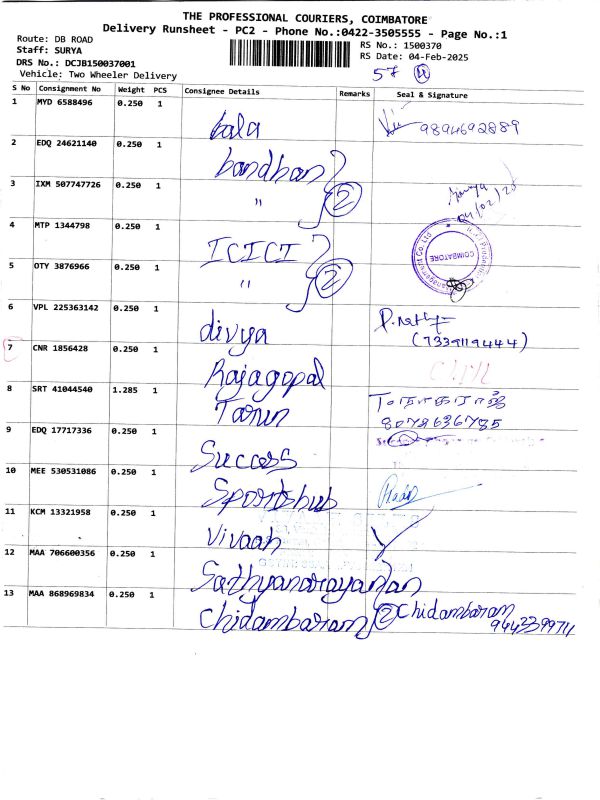 THE PROFESSIONAL COURIERS, COIMBATORE
Delivery Runsheet - PC2 - Phone No.:0422-3505555 - Page No.:1
Route: DB ROAD
Staff: SURYA
DRS No.: DCJB150037001
Vehicle: Two Wheeler Delivery
RS No.: 1500370
RS Date: 04-Feb-2025
57 4
S No Consignment No Weight PCS Consignee Details Remarks Seal & Signature
1 MYD 6588496 0.250 1 bala 9894692889
2 EDQ 24621140 0.250 1 bandhan
3 IXM 507747726 0.250 1 " 2 04/02/25
4 MTP 1344798 0.250 1 ICICI
5 OTY 3876966 0.250 1 " 2 COIMBATORE
6 VPL 225363142 0.250 1 divya (7339119444)
7 CNR 1856428 0.250 1 Rajagopal
8 SRT 41044540 1.285 1 Tarun 8072636785
9 EDQ 17717336 0.250 1 Success
10 MEE 530531086 0.250 1 Sportshub
11 KCM 13321958 0.250 1 Vivaah
12 MAA 706600356 0.250 1 Sathyanarayanan
13 MAA 868969834 0.250 1 Chidambaram 2 Chidambaram
9442399711